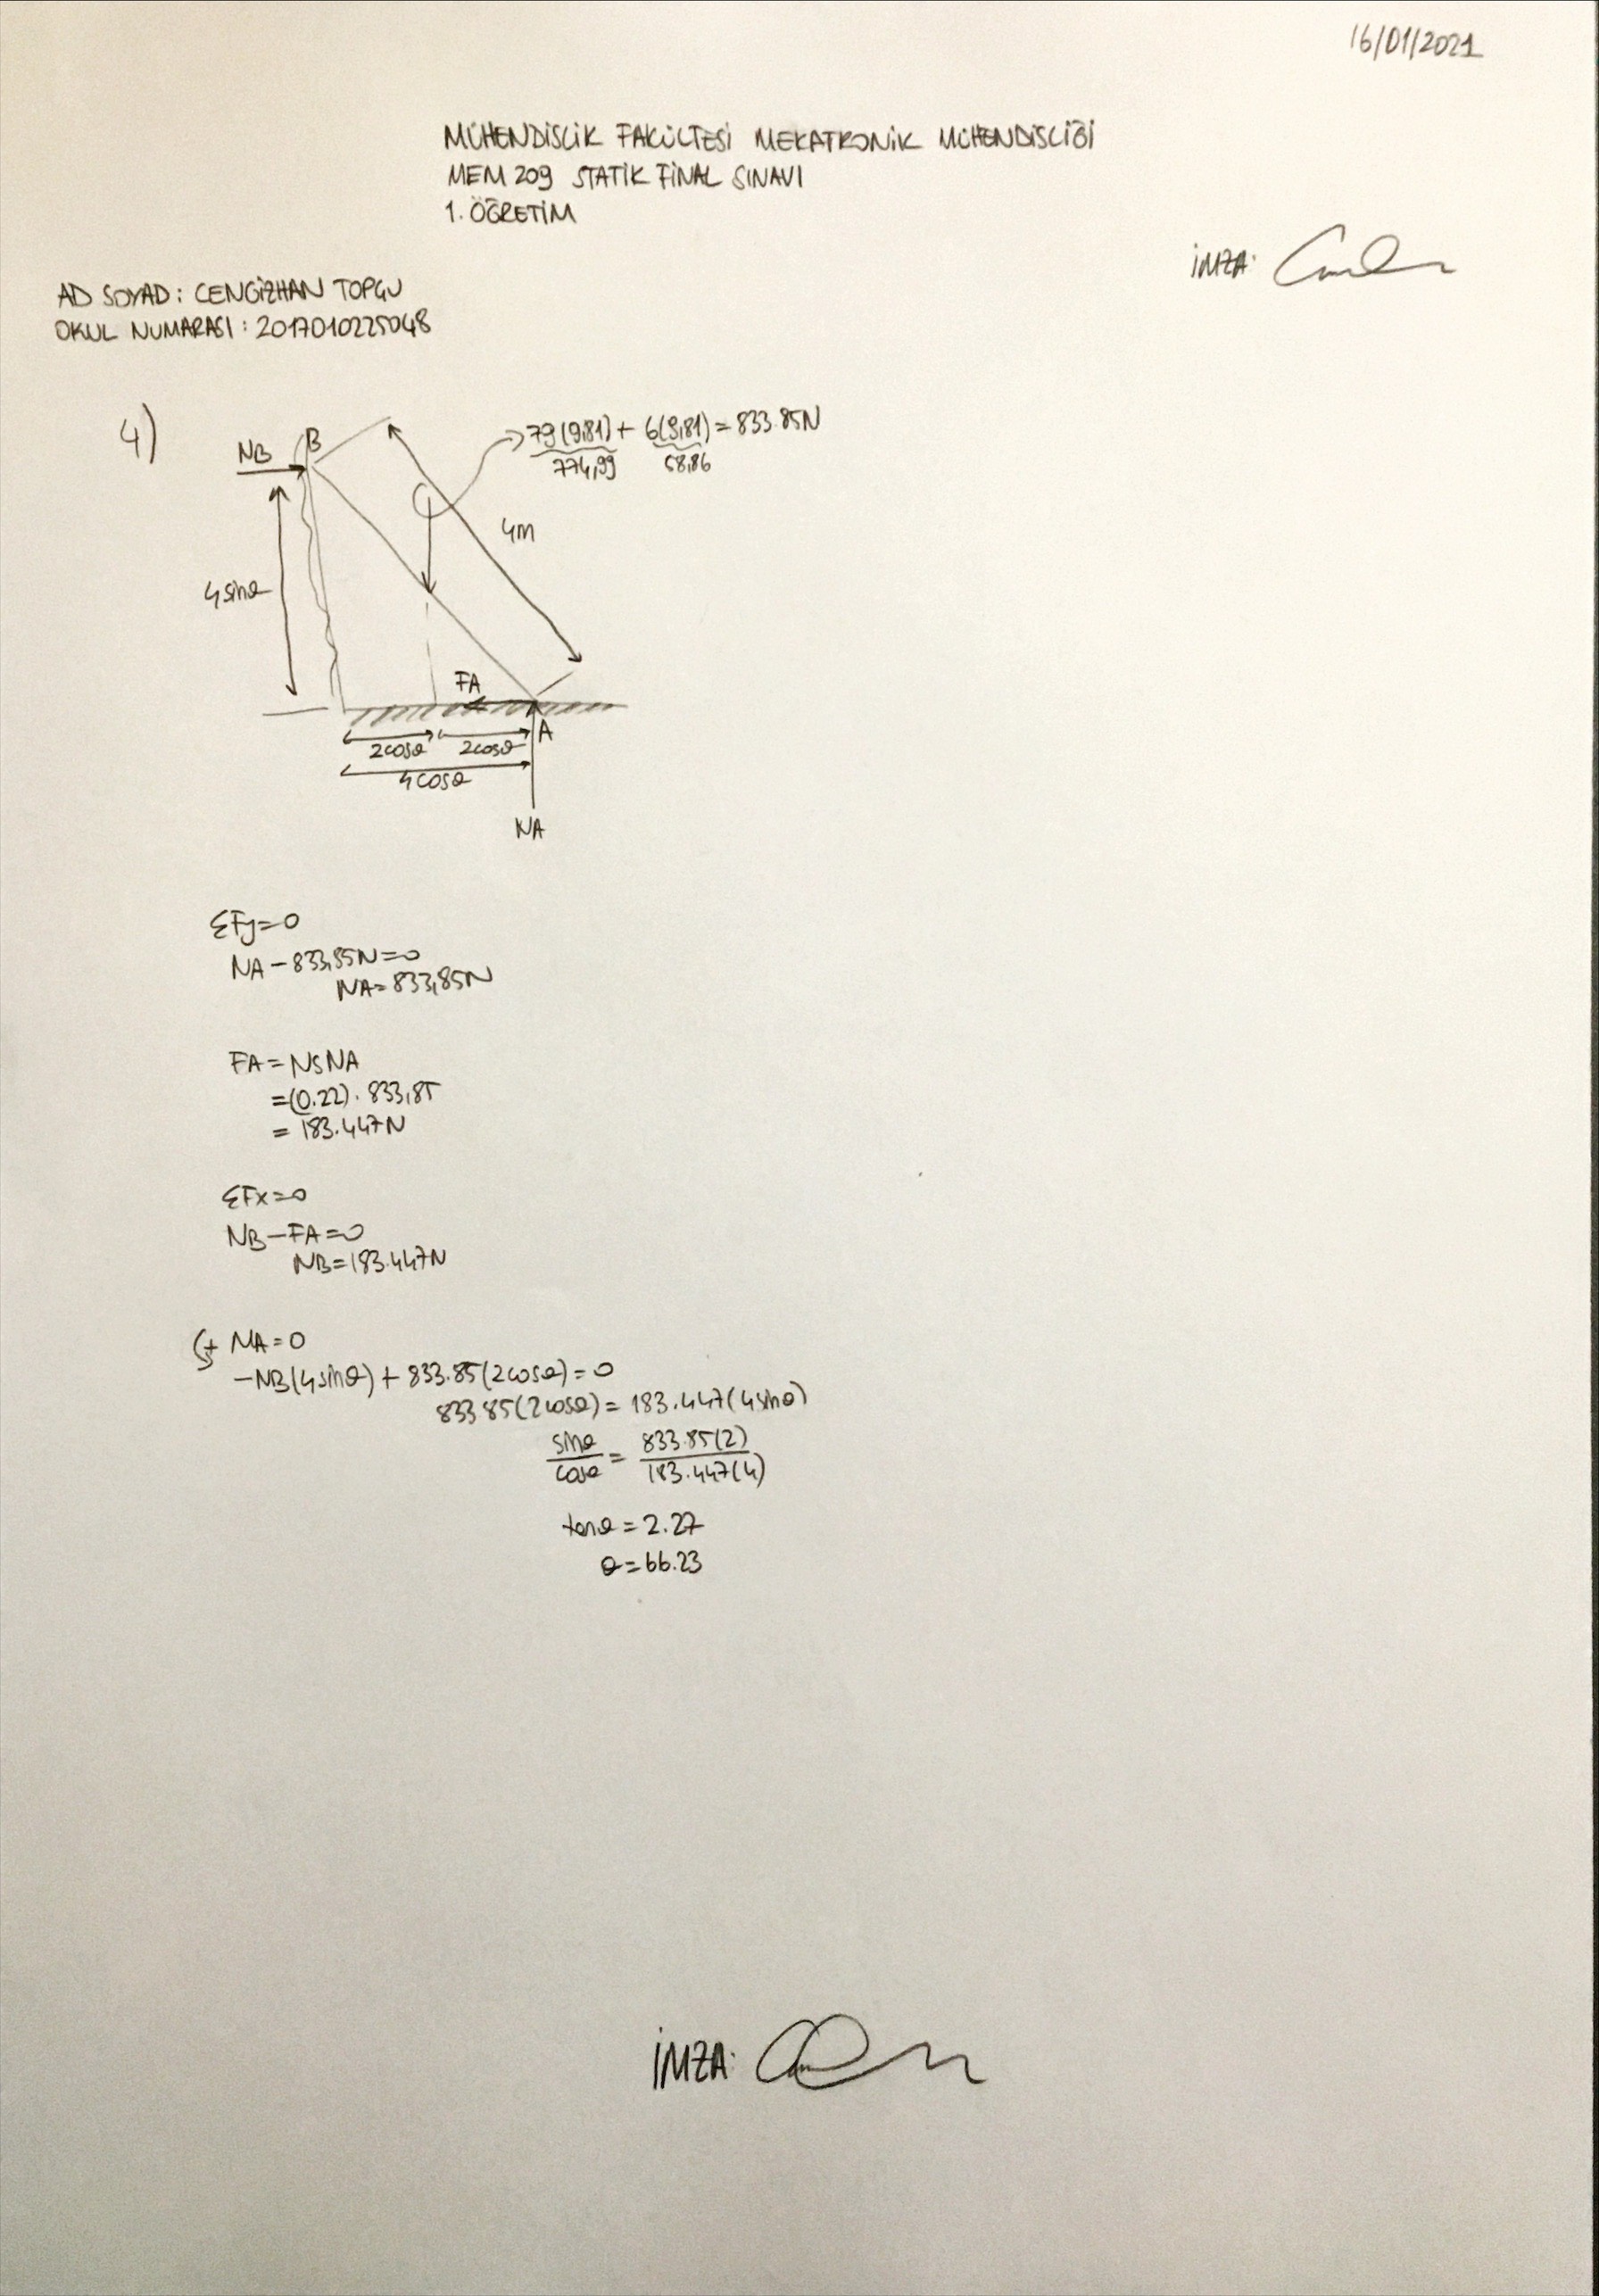 16/01/2021
MÜHENDİSLİK FAKÜLTESİ MEKATRONİK MÜHENDİSLİĞİ
MEM 209 STATİK FİNAL SINAVI
1. ÖĞRETİM
İMZA:
AD SOYAD: CENGİZHAN TOPÇU
OKUL NUMARASI: 2017010225048
4)
NB B
79(9,81) + 6(9,81) = 833.85N
774,99 58,86
4m
4sinθ
FA
A
2cosθ 2cosθ
4cosθ
NA
ΣFy=0
NA-833,85N=0
NA=833,85N
FA=NSNA
=(0.22). 833,85
= 183.447N
ΣFx=0
NB-FA=0
NB=183.447N
(+ MA=0
-NB(4sinθ)+ 833.85(2cosθ)=0
833.85(2cosθ)= 183.447(4sinθ)
sinθ/cosθ = 833.85(2)/183.447(4)
tanθ = 2.27
θ=66.23
İMZA: